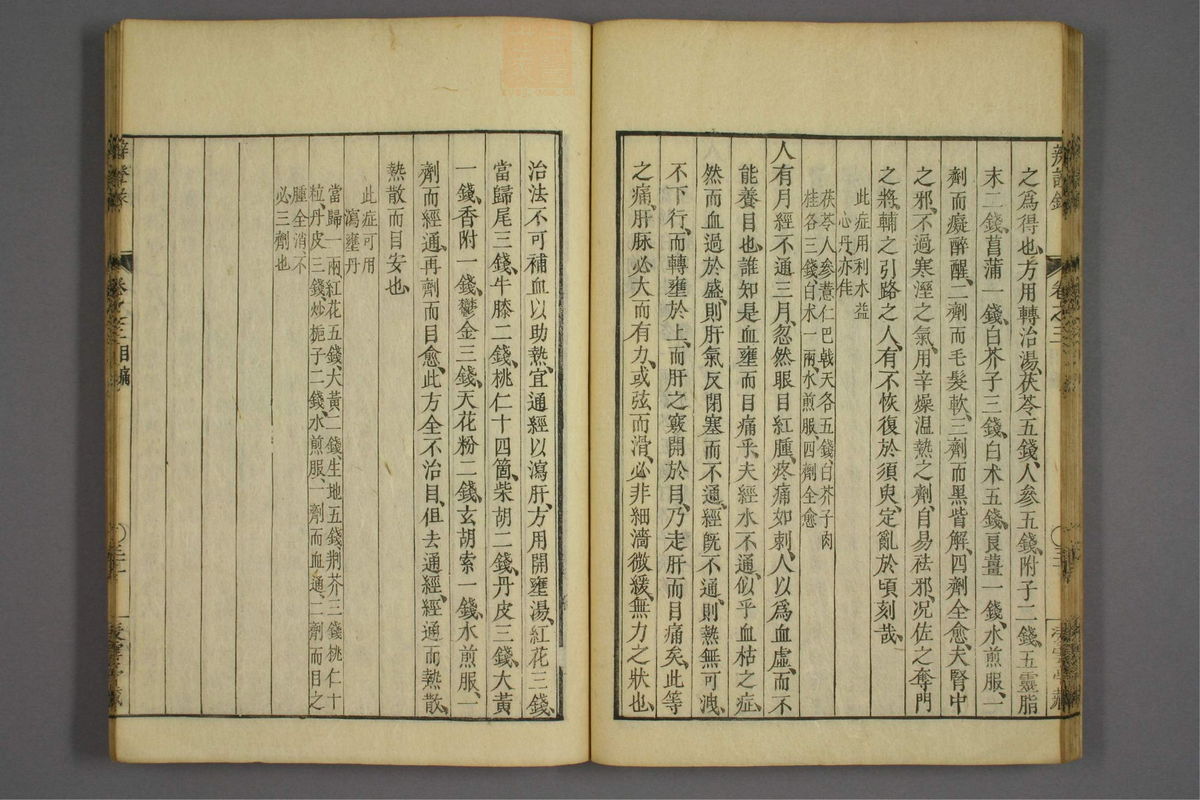 辨證錄
卷之三
之爲得也、方用轉治湯、茯苓五錢、人參五錢、附子二錢、五靈脂
末二錢、菖蒲一錢、白芥子三錢、白朮五錢、良薑一錢、水煎服、一
劑而癡醉醒、二劑而毛髮軟、三劑而黑眥解、四劑全愈、夫腎中
之邪、不過寒溼之氣、用辛燥温熱之劑、自易祛邪、况佐之奪門
之將、輔之引路之人、有不恢復於須臾、定亂於頃刻哉、
此症用利水益
心丹亦佳
茯苓人參薏仁巴戟天各五錢、白芥子肉
桂各三錢、白朮一兩、水煎服、四劑全愈
人有月經不通三月、忽然眼目紅腫、疼痛如刺、人以爲血虛、而不
能養目也、誰知是血壅而目痛乎、夫經水不通、似乎血枯之症、
然而血過於盛、則肝氣反閉塞而不通、經旣不通、則熱無可洩、
不下行、而轉壅於上、而肝之竅開於目、乃走肝而目痛矣、此等
之痛、肝脉必大而有力、或弦而滑、必非細濇微緩、無力之狀也、
治法不可補血以助熱、宜通經以瀉肝、方用開壅湯、紅花三錢、
當歸尾三錢、牛膝二錢、桃仁十四箇、柴胡二錢、丹皮三錢、大黄
一錢、香附一錢、鬱金三錢、天花粉二錢、玄胡索一錢、水煎服、一
劑而經通、再劑而目愈、此方全不治目、但去通經、經通而熱散、
熱散而目安也、
此症可用
瀉壅丹
當歸一兩、紅花五錢、大黄二錢、生地五錢、荆芥三錢、桃仁十
粒、丹皮三錢、炒梔子二錢、水煎服、一劑而血通、二劑而目之
腫全消、不
必三劑也
辨證錄
卷之三目痛